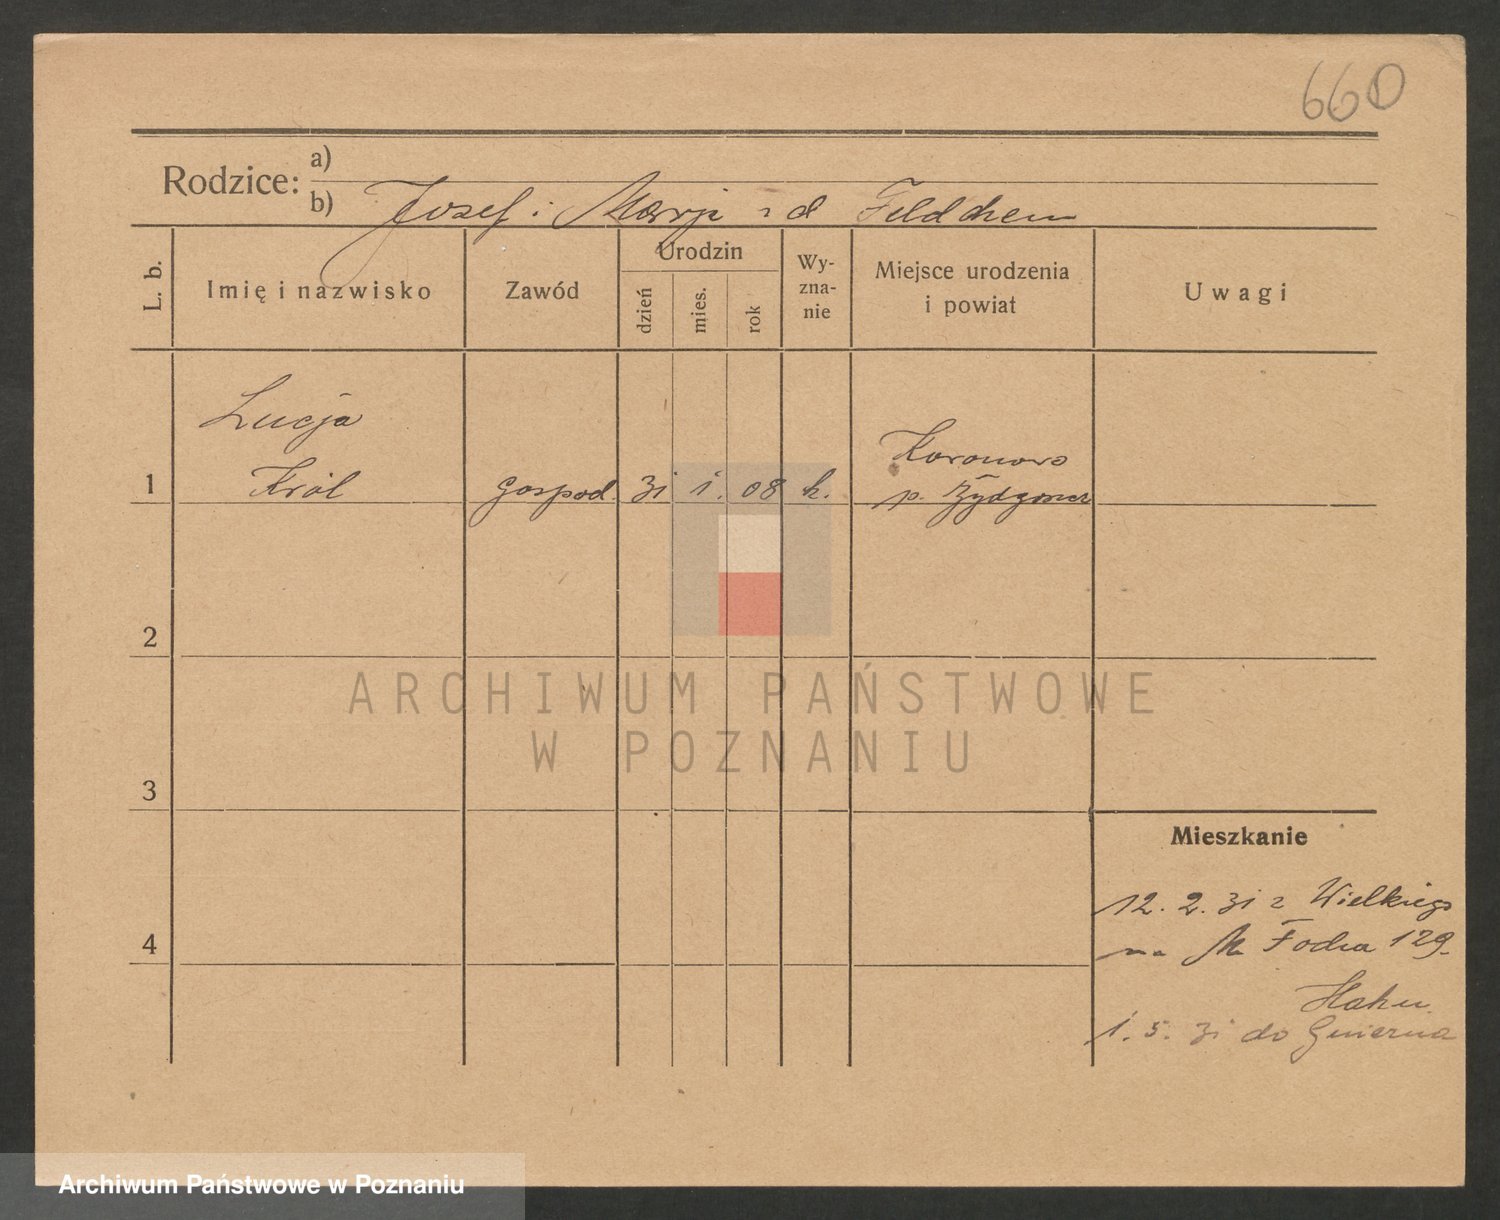 660
Rodzice:
a)
b) Josef i Marja z d Feldchen
L. b.
Imię i nazwisko
Zawód
Urodzin
dzień
mies.
rok
Wy-
zna-
nie
Miejsce urodzenia
i powiat
Uwagi
Lucja
1 Król gospod. 31 1. 08 k.
Koronowo
p. Bydgoszcz
2
3
4
ARCHIWUM PAŃSTWOWE
W POZNANIU
Mieszkanie
12. 2. 31 z Wielkiego
na M Focha 129.
Hahn
1. 5. 31 do Gniezna
Archiwum Państwowe w Poznaniu